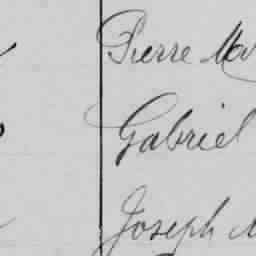 Pierre Ma
Gabriel
Joseph